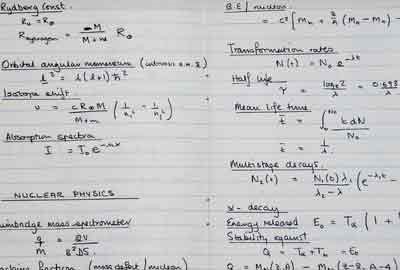 Rydberg Const.
R₀ = R∞
R hydrogen = M / M+m R∞
Orbital angular momentum
l² = l(l+1)ħ²
Isotope shift.
υ = cR∞M / M+m (1/n₁² - 1/n₂²)
Absorption spectra
I = I₀e
NUCLEAR PHYSICS
mass spectrometer
q/m =
fraction (mass defect / nucleon)
B.E / nucleon
= c² [Mn + Z/A (MH - Mn) -
Transformation rates
N(t) = N₀ e^-λt
Half life
τ = loge2 / λ = 0.693
Mean life time
t̄ = ∫ t dN / N₀
t̄ = 1/λ
Multistage decays.
N₂(t) = N₁(0) λ₁ / λ₂ - λ₁ (e^-λ₁t -
α - decay
Energy released E₀ = Tα (1 +
Stability against
Q = Tα + Tb = E₀